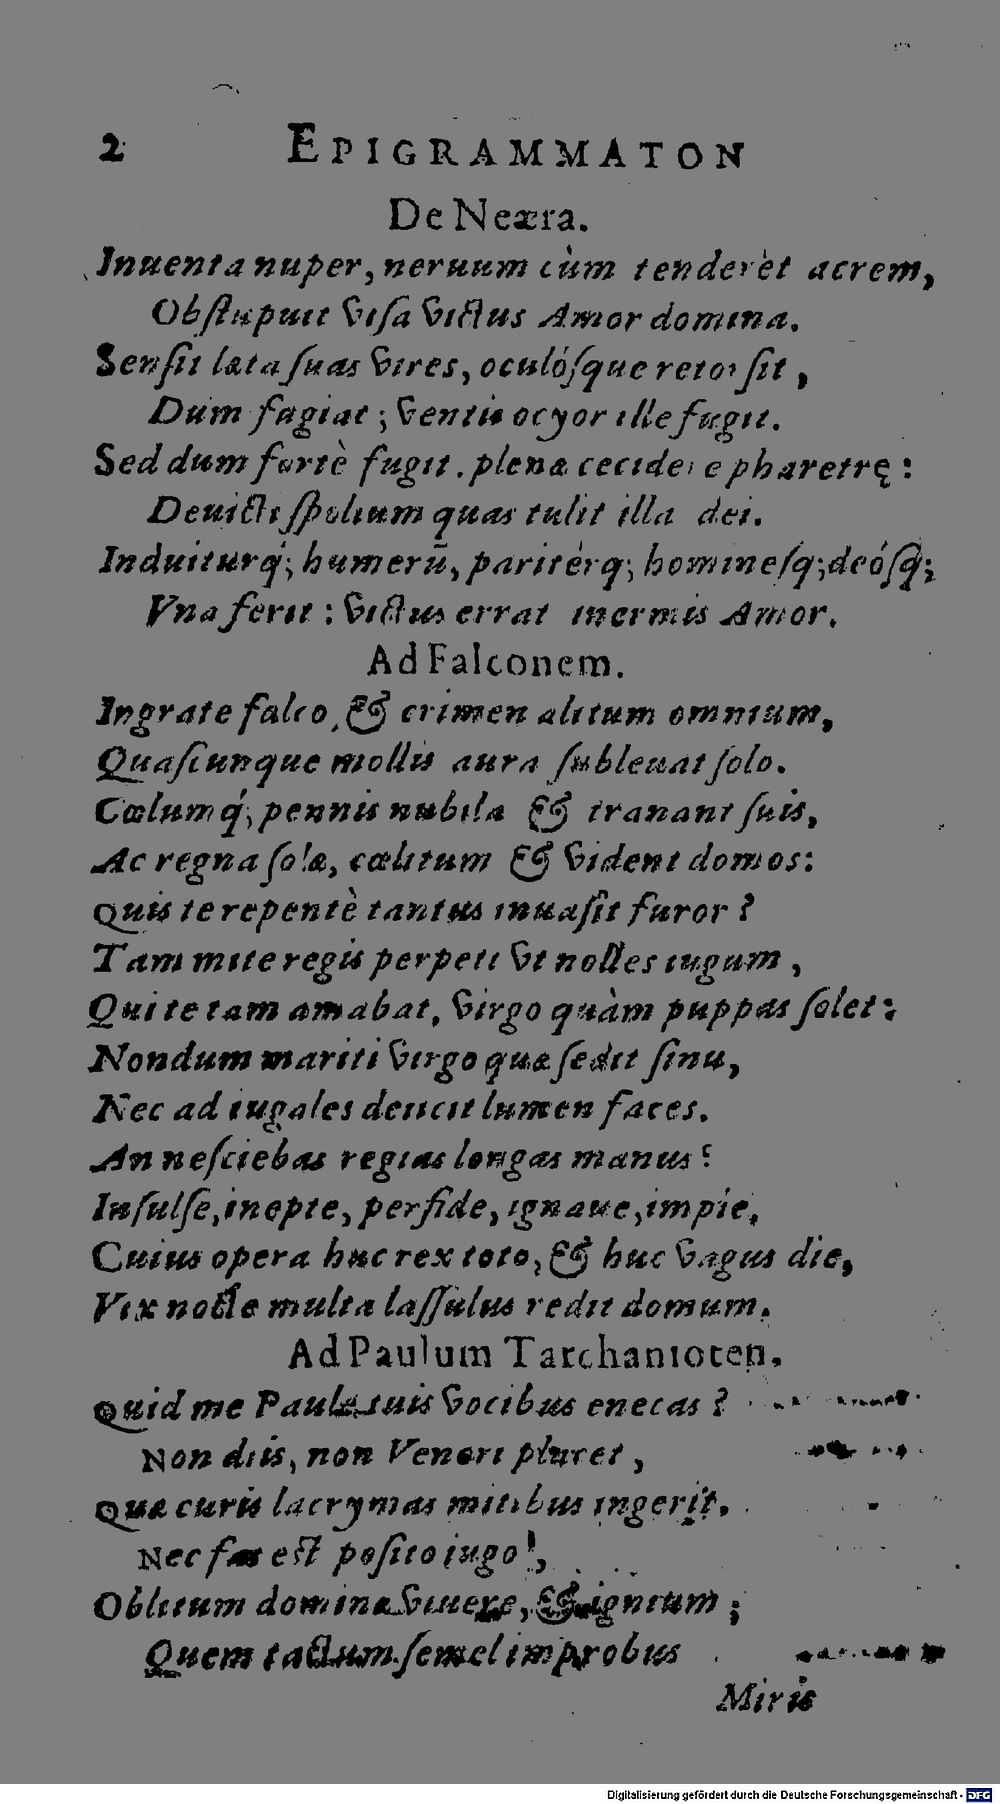 2 EPIGRAMMATON
De Neæra.
Inuenta nuper, neruum cùm tenderèt acrem,
Obſtupuit viſa victus Amor domina.
Senſit læta ſuas vires, oculóſque retorſit,
Dum fagiat; ventis ocyor ille fugit.
Sed dum fortè fugit. plenæ cecidere pharetrę:
Deuicti ſpolium quas tulit illa dei.
Induiturq́; humerũ, paritérq; homineſq; deóſq́;
Vna ferit: victus errat inermis Amor.
Ad Falconem.
Ingrate falco, & crimen alitum omnium,
Quaſcunque mollis aura ſubleuat ſolo.
Cœlumq́; pennis nubila & tranant ſuis,
Ac regna ſola, cœlitum & vident domos:
Quis te repentè tantus inuaſit furor?
Tam mite regis perpeti vt nolles iugum,
Qui te tam amabat, virgo quàm puppas ſolet:
Nondum mariti virgo quæ ſedit ſinu,
Nec ad iugales deiicit lumen faces.
An neſciebas regias longas manus?
Inſulſe, inepte, perfide, ignaue, impie,
Cuius opera huc rex toto, & huc vagus die,
Vix nocte multa laſſulus redit domum.
Ad Paulum Tarchanioten.
Quid me Paule tuis vocibus enecas?
Non diis, non Veneri placet,
Quæ curis lacrymas mitibus ingerit.
Nec fas est poſito iugo!,
Oblitum dominæ viuere, & ignium;
Quem tactum ſemel improbus
Miris
Digitalisierung gefördert durch die Deutsche Forschungsgemeinschaft - DFG